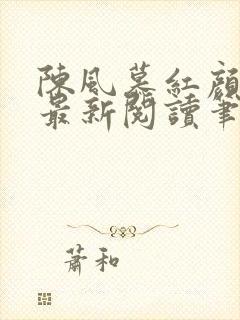 陳風慕紅顏
最新閱讀筆
蕭和